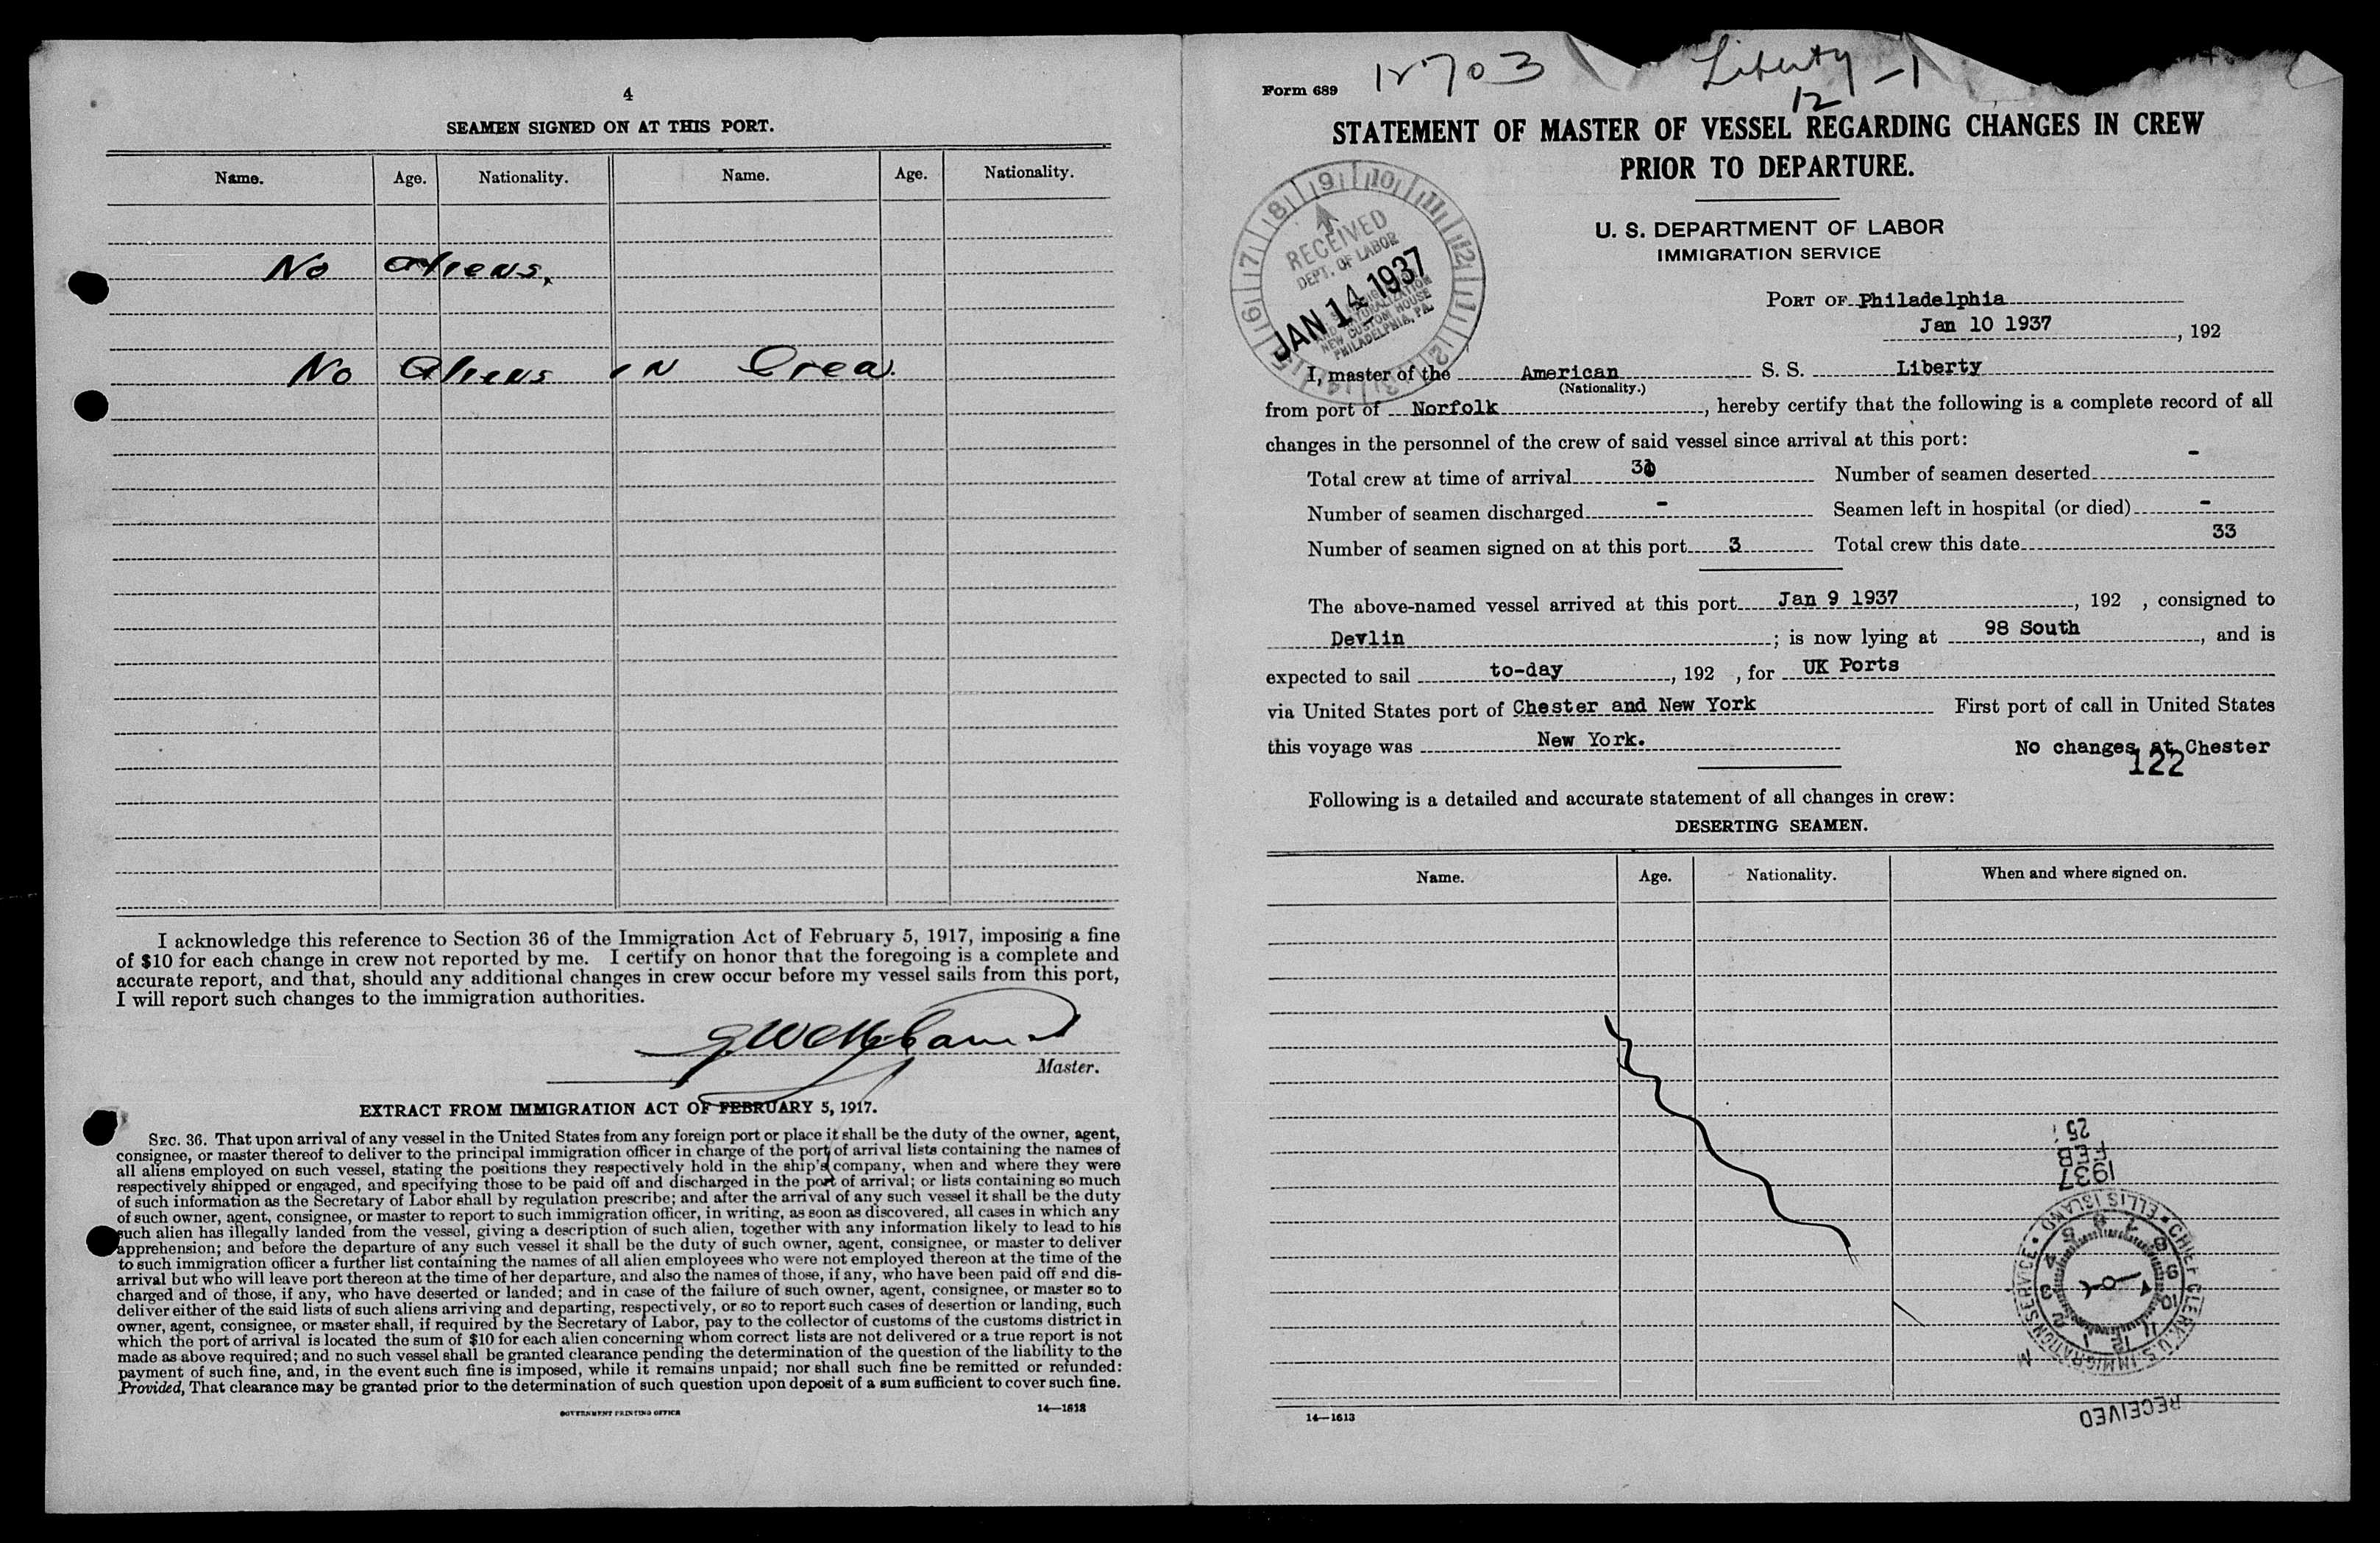 4
SEAMEN SIGNED ON AT THIS PORT.
Name. Age. Nationality. Name. Age. Nationality.
No aliens.
No Aliens in Crew.
I acknowledge this reference to Section 36 of the Immigration Act of February 5, 1917, imposing a fine
of $10 for each change in crew not reported by me. I certify on honor that the foregoing is a complete and
accurate report, and that, should any additional changes in crew occur before my vessel sails from this port,
I will report such changes to the immigration authorities.
Master.
EXTRACT FROM IMMIGRATION ACT OF FEBRUARY 5, 1917.
SEC. 36. That upon arrival of any vessel in the United States from any foreign port or place it shall be the duty of the owner, agent,
consignee, or master thereof to deliver to the principal immigration officer in charge of the port of arrival lists containing the names of
all aliens employed on such vessel, stating the positions they respectively hold in the ship's company, when and where they were
respectively shipped or engaged, and specifying those to be paid off and discharged in the port of arrival; or lists containing so much
of such information as the Secretary of Labor shall by regulation prescribe; and after the arrival of any such vessel it shall be the duty
of such owner, agent, consignee, or master to report to such immigration officer, in writing, as soon as discovered, all cases in which any
such alien has illegally landed from the vessel, giving a description of such alien, together with any information likely to lead to his
apprehension; and before the departure of any such vessel it shall be the duty of such owner, agent, consignee, or master to deliver
to such immigration officer a further list containing the names of all alien employees who were not employed thereon at the time of the
arrival but who will leave port thereon at the time of her departure, and also the names of those, if any, who have been paid off and dis-
charged and of those, if any, who have deserted or landed; and in case of the failure of such owner, agent, consignee, or master so to
deliver either of the said lists of such aliens arriving and departing, respectively, or so to report such cases of desertion or landing, such
owner, agent, consignee, or master shall, if required by the Secretary of Labor, pay to the collector of customs of the customs district in
which the port of arrival is located the sum of $10 for each alien concerning whom correct lists are not delivered or a true report is not
made as above required; and no such vessel shall be granted clearance pending the determination of the question of the liability to the
payment of such fine, and, in the event such fine is imposed, while it remains unpaid; nor shall such fine be remitted or refunded:
Provided, That clearance may be granted prior to the determination of such question upon deposit of a sum sufficient to cover such fine.
GOVERNMENT PRINTING OFFICE 14—1613
Form 689 12703 Liberty -1
12
STATEMENT OF MASTER OF VESSEL REGARDING CHANGES IN CREW
PRIOR TO DEPARTURE.
U. S. DEPARTMENT OF LABOR
IMMIGRATION SERVICE
RECEIVED
DEPT. OF LABOR
JAN 14 1937
NEW CUSTOM HOUSE
PHILADELPHIA, PA.
PORT OF Philadelphia
Jan 10 1937, 192
I, master of the American S. S. Liberty
(Nationality.)
from port of Norfolk, hereby certify that the following is a complete record of all
changes in the personnel of the crew of said vessel since arrival at this port:
Total crew at time of arrival Number of seamen deserted -
Number of seamen discharged - Seamen left in hospital (or died) -
Number of seamen signed on at this port 3 Total crew this date 33
The above-named vessel arrived at this port Jan 9 1937, 192 , consigned to
Devlin; is now lying at 98 South, and is
expected to sail to-day, 192 , for UK Ports
via United States port of Chester and New York First port of call in United States
this voyage was New York. No changes at Chester
122
Following is a detailed and accurate statement of all changes in crew:
DESERTING SEAMEN.
Name. Age. Nationality. When and where signed on.
1937
FEB
25
CHIEF CLERK, U.S. IMMIGRATION SERVICE • ELLIS ISLAND •
RECEIVED
14—1613